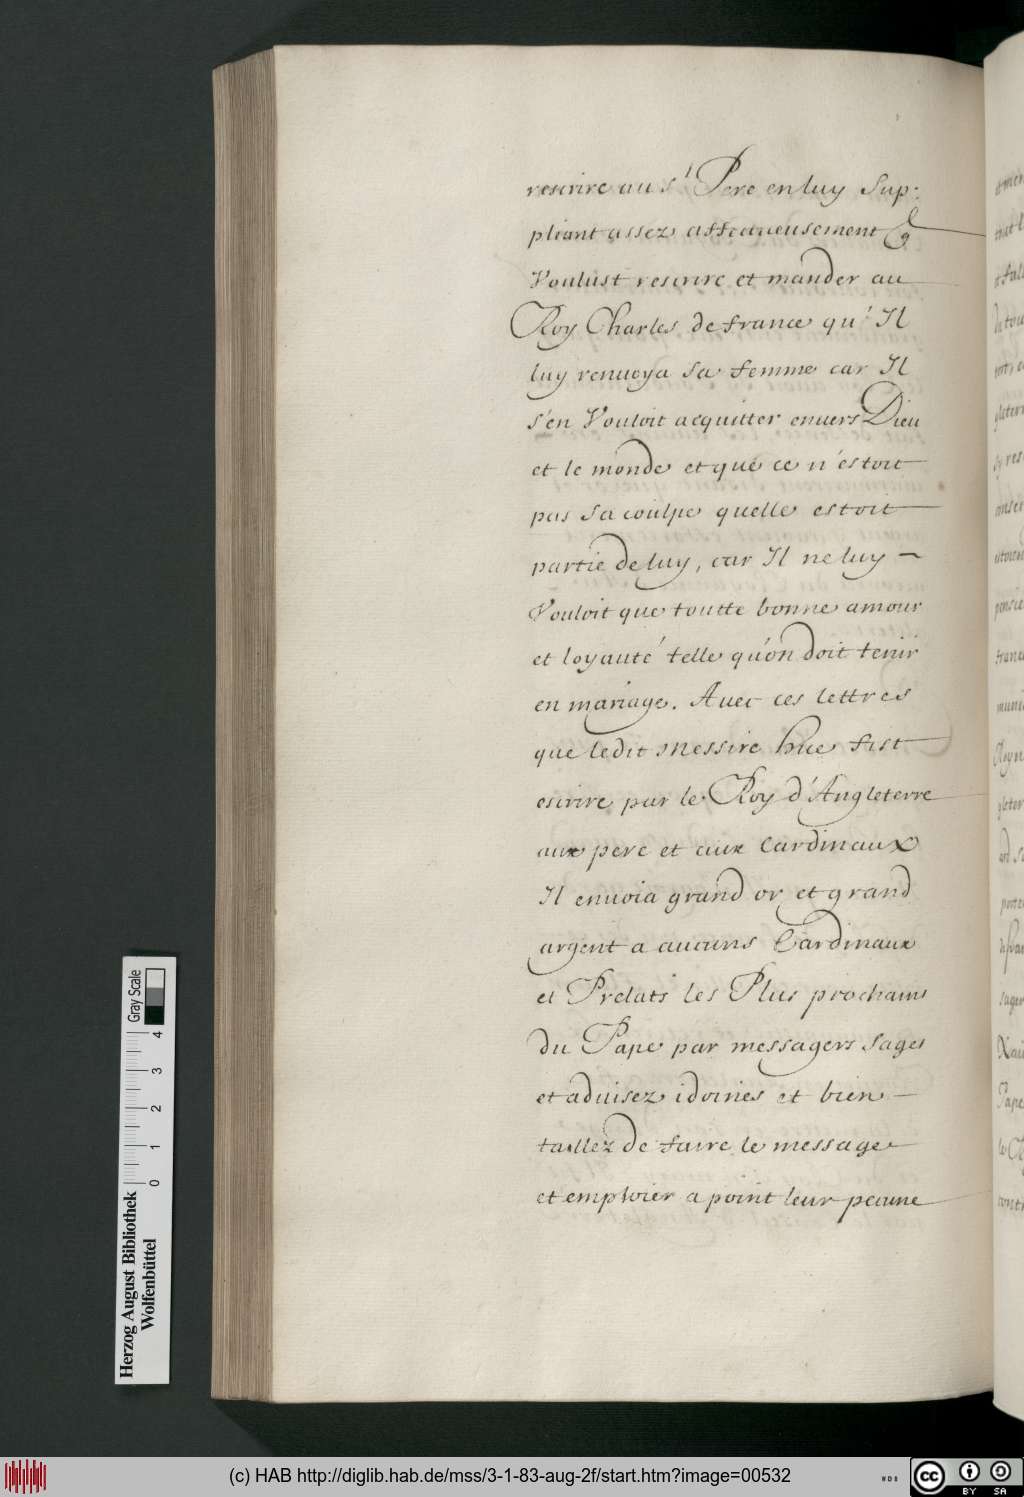 rescrire au s.t Pere en luy Sup:
pliant assez affectueusement q
Voulust rescrire et mander au
Roy Charles de france qu'Il
luy renuoya sa femme car Il
s'en Vouloit acquitter enuers Dieu
et le monde et que ce n'estoit
pas sa coulpe quelle estoit
partie de luy, car Il ne luy
Vouloit que toutte bonne amour
et loyauté telle qu'on doit tenir
en mariage. Auec ces lettres
que ledit Messire hue fist
escrire par le Roy d'Angleterre
aux pere et aux Cardinaux
Il enuoia grand or et grand
argent a aucuns Cardinaux
et Prelats les Plus prochains
du Pape par messagers sages
et aduisez idoines et bien
taillez de faire le message
et emploier a point leur pecune
Gray Scale
0 1 2 3 4
Herzog August Bibliothek
Wolfenbüttel
(c) HAB http://diglib.hab.de/mss/3-1-83-aug-2f/start.htm?image=00532
WDB
cc
BY SA